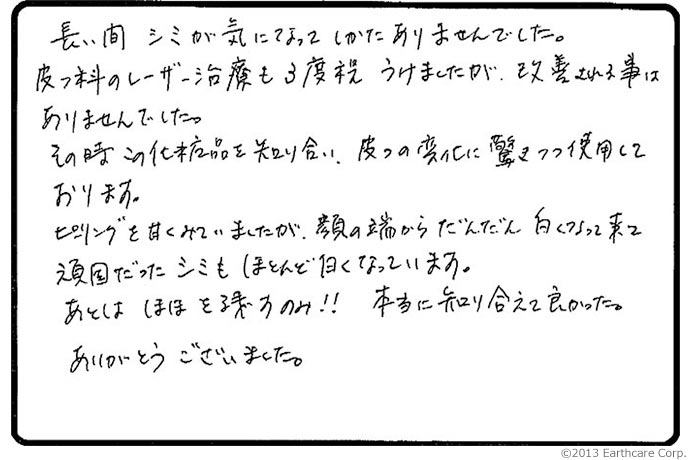 長い間 シミが気になって しかたありませんでした。
皮フ科のレーザー治療も3度程 うけましたが、改善される事は
ありませんでした。
その時 この化粧品を知り合い、皮フの変化に驚きつつ使用して
おります。
ピーリングを甘くみていましたが、顔の端から だんだん 白くなって来て
頑固だった シミも ほとんど白くなっています。
あとは ほほ を残すのみ!! 本当に知り合えて良かった。
ありがとう ございました。
©2013 Earthcare Corp.